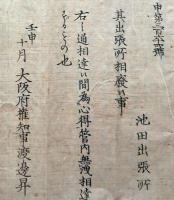 申第三百二十二號
池田出張所
其出張所相廢候事
右之通相達候間為心得管内無洩相達
もの也
壬申
十月 大阪府權知事渡邊昇